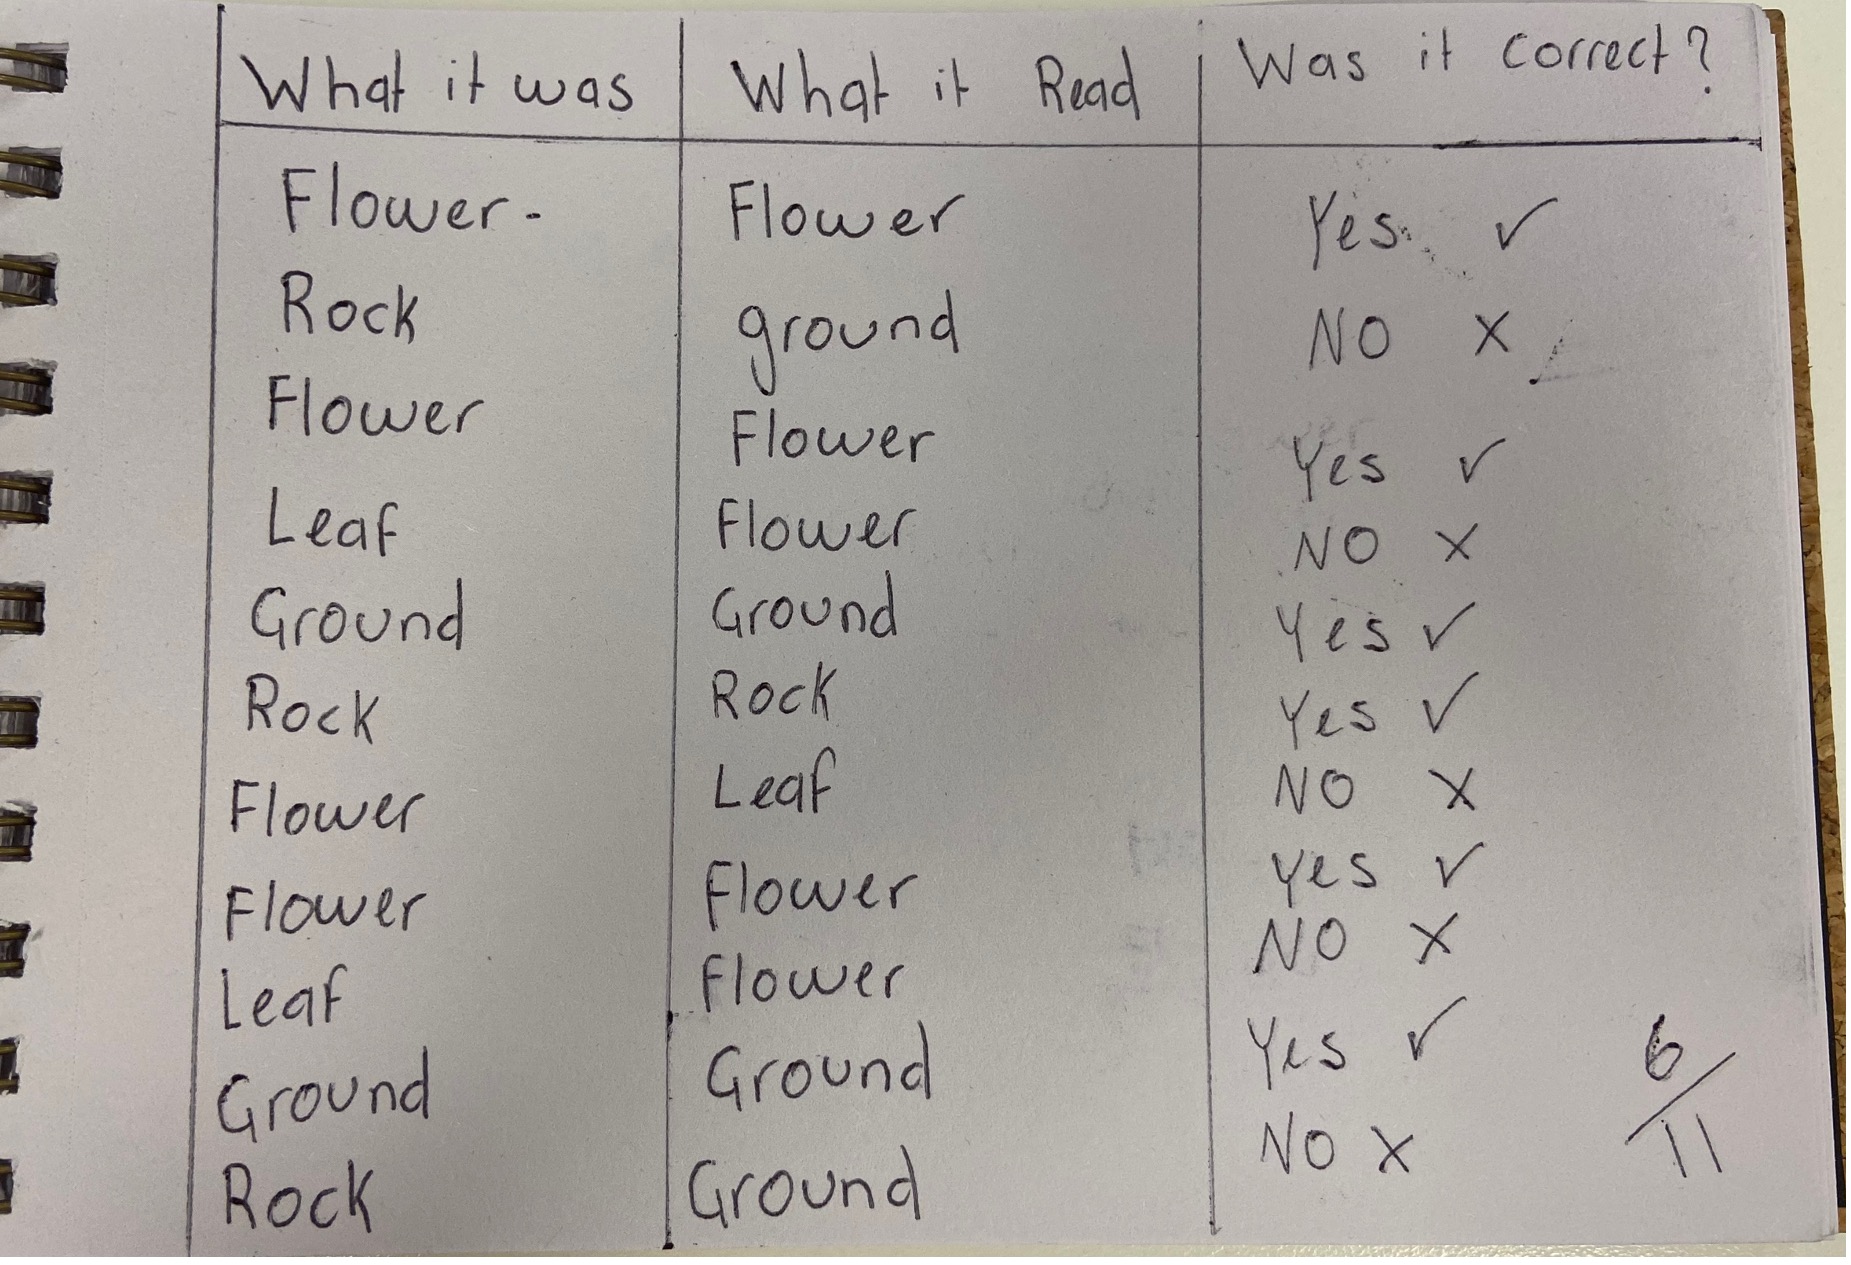 What it was What it Read Was it correct?
Flower - Flower Yes ✓
Rock ground NO X
Flower Flower Yes ✓
Leaf Flower NO X
Ground Ground Yes ✓
Rock Rock Yes ✓
Flower Leaf NO X
Flower Flower Yes ✓
Leaf Flower NO X
Ground Ground Yes ✓
Rock Ground NO X
6/11